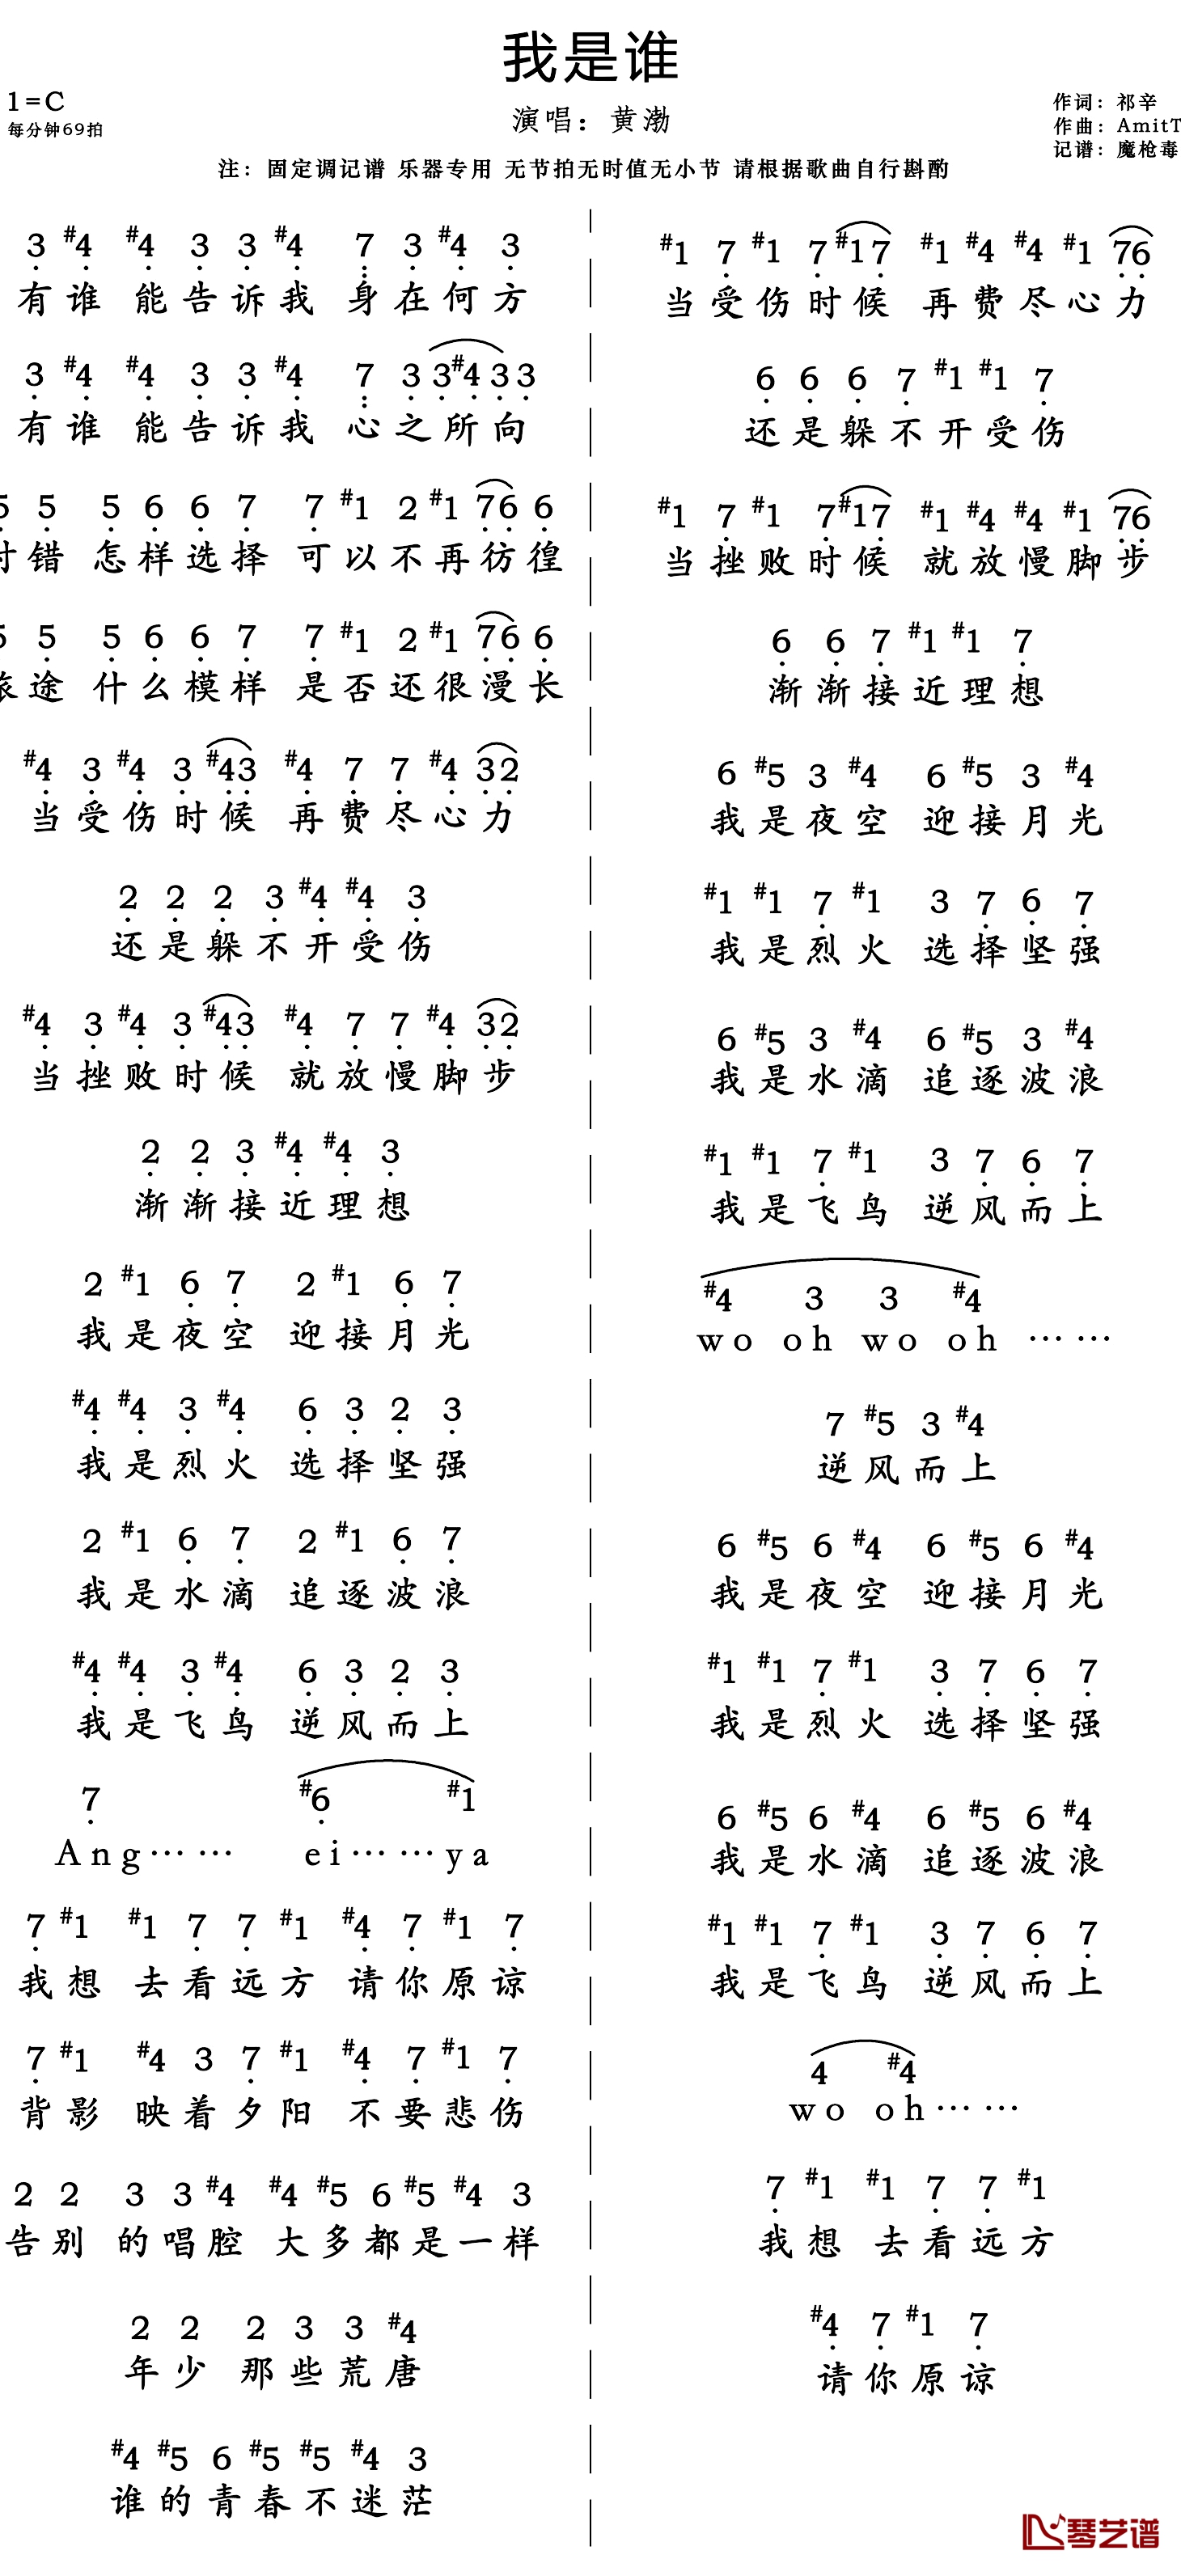 我是谁
1=C
每分钟69拍
演唱：黄渤
作词：祁辛
作曲：AmitT
记谱：魔枪毒
注：固定调记谱 乐器专用 无节拍无时值无小节 请根据歌曲自行斟酌
3 #4 #4 3 3 #4 7 3 #4 3
有谁 能告诉我 身在何方
3 #4 #4 3 3 #4 7 3 3 #4 3 3
有谁 能告诉我 心之所向
5 5 5 6 6 7 7 #1 2 #1 7 6 6
错 怎样选择 可以不再彷徨
5 5 5 6 6 7 7 #1 2 #1 7 6 6
途 什么模样 是否还很漫长
#4 3 #4 3 #4 3 #4 7 7 #4 3 2
当受伤时候 再费尽心力
2 2 2 3 #4 #4 3
还是躲不开受伤
#4 3 #4 3 #4 3 #4 7 7 #4 3 2
当挫败时候 就放慢脚步
2 2 3 #4 #4 3
渐渐接近理想
2 #1 6 7 2 #1 6 7
我是夜空 迎接月光
#4 #4 3 #4 6 3 2 3
我是烈火 选择坚强
2 #1 6 7 2 #1 6 7
我是水滴 追逐波浪
#4 #4 3 #4 6 3 2 3
我是飞鸟 逆风而上
7 #6 #1
Ang…… ei……ya
7 #1 #1 7 7 #1 #4 7 #1 7
我想 去看远方 请你原谅
7 #1 #4 3 7 #1 #4 7 #1 7
背影 映着夕阳 不要悲伤
2 2 3 3 #4 #4 #5 6 #5 #4 3
告别 的唱腔 大多都是一样
2 2 2 3 3 #4
年少 那些荒唐
#4 #5 6 #5 #5 #4 3
谁的青春不迷茫
#1 7 #1 7 #1 7 #1 #4 #4 #1 7 6
当受伤时候 再费尽心力
6 6 6 7 #1 #1 7
还是躲不开受伤
#1 7 #1 7 #1 7 #1 #4 #4 #1 7 6
当挫败时候 就放慢脚步
6 6 7 #1 #1 7
渐渐接近理想
6 #5 3 #4 6 #5 3 #4
我是夜空 迎接月光
#1 #1 7 #1 3 7 6 7
我是烈火 选择坚强
6 #5 3 #4 6 #5 3 #4
我是水滴 追逐波浪
#1 #1 7 #1 3 7 6 7
我是飞鸟 逆风而上
#4 3 3 #4
wo oh wo oh ……
7 #5 3 #4
逆风而上
6 #5 6 #4 6 #5 6 #4
我是夜空 迎接月光
#1 #1 7 #1 3 7 6 7
我是烈火 选择坚强
6 #5 6 #4 6 #5 6 #4
我是水滴 追逐波浪
#1 #1 7 #1 3 7 6 7
我是飞鸟 逆风而上
4 #4
wo oh……
7 #1 #1 7 7 #1
我想 去看远方
#4 7 #1 7
请你原谅
琴艺谱